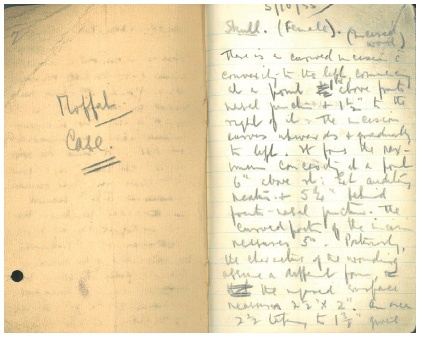 Moffat
Case.
5/10/35
Skull. (Female). (Incised
wound)
There is a curved incision c
convexity to the left, commencing
at a point 1½" above fronto
nasal junction & 1½" to the
right of it & the incision
curves upwards & gradually
to left. It forms the max-
imum convexity at a point
6" above rt. ext. auditory
meatus & 5¾" behind
fronto-nasal junction. The
curved part of the incision
measures 5". Posteriorly,
the character of the wounding
assume a different form,
the exposed surface
measures 2½" x 2". An area
2½ tapering to 1¾"